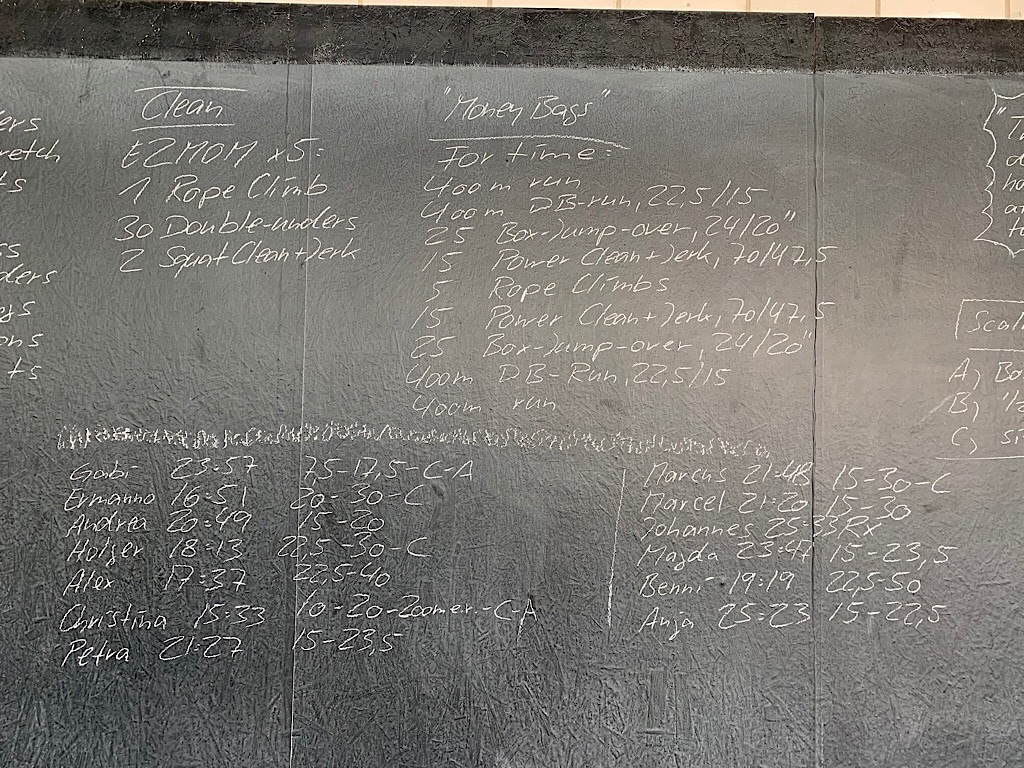 ers
retch
ts
ss
ders
gs
ons
ts
Clean
E2MOM x5:
1 Rope Climb
30 Double-unders
2 Squat Clean+Jerk
"Money Bags"
For time:
400m run
400m DB-run, 22,5/15
25 Box-Jump-over, 24/20"
15 Power Clean+Jerk, 70/47,5
5 Rope Climbs
15 Power Clean+Jerk, 70/47,5
25 Box-Jump-over, 24/20"
400m DB-Run, 22,5/15
400m run
Scal
A) Bo
B) 1/2
C) si
Gabi 23:57 7,5-17,5-C-A
Ermanno 16:51 20-30-C
Andrea 20:49 15-20
Holger 18:13 22,5-30-C
Alex 17:37 22,5-40
Christina 15:33 10-20-Zoomer-C-A
Petra 21:27 15-23,5
Marcus 21:48 15-30-C
Marcel 21:20 15-30
Johannes 25:33 Rx
Magda 23:47 15-23,5
Benni 19:19 22,5-50
Anja 25:23 15-22,5